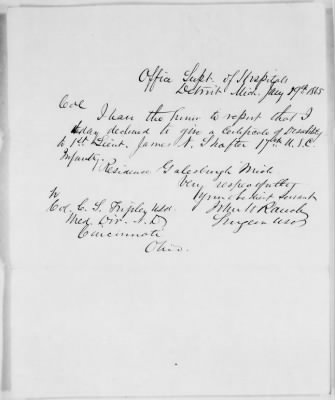 Office Supt. of Hospitals
Detroit Mich. Jany 19th 1865
Col
I have the honor to report that I
today declined to give a Certificate of Disability
to 1st Lieut. James N. Shafter 17th U.S.C.
Infantry, Residence Galesburgh Mich
Very respectfully
Your obedient servant
John H Rauch
Surgeon USV
To
Col. C. S. Tripler USA.
Med. Dir. N.D.
Cincinnati
Ohio.